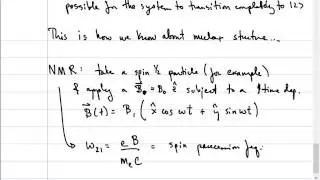 possible for the system to transition completely to |2>
This is how we know about nuclear structure...
NMR: take a spin 1/2 particle (for example)
& apply a B₀ = B₀ ẑ subject to a time dep.
B⃗(t) = B₁ ( x̂ cos ωt + ŷ sin ωt )
ω₂₁ = eB / mₑc = spin precession freq.